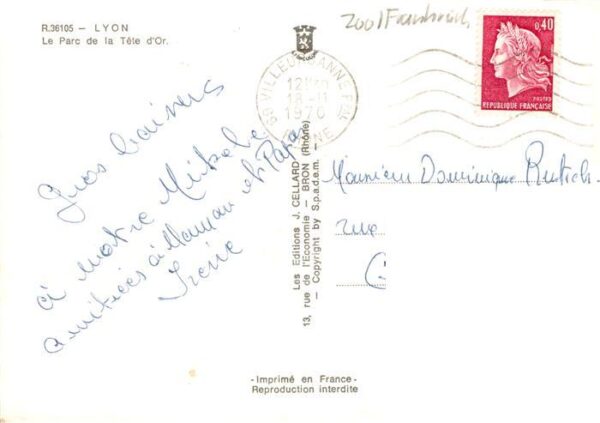 R.36105 - LYON
Le Parc de la Tête d'Or.
Zoo/Frankreich
0,40
POSTES
REPUBLIQUE FRANÇAISE
VILLEURBANNE
12H
18-
1970
RHONE
Gros baisers
à notre
amitiées à Maman et Papa
Irène
Les Editions J. CELLARD
13, rue de l'Economie - BRON (Rhône)
- Copyright by S.p.a.d.e.m. -
Monsieur Dominique
rue
- Imprimé en France -
Reproduction interdite